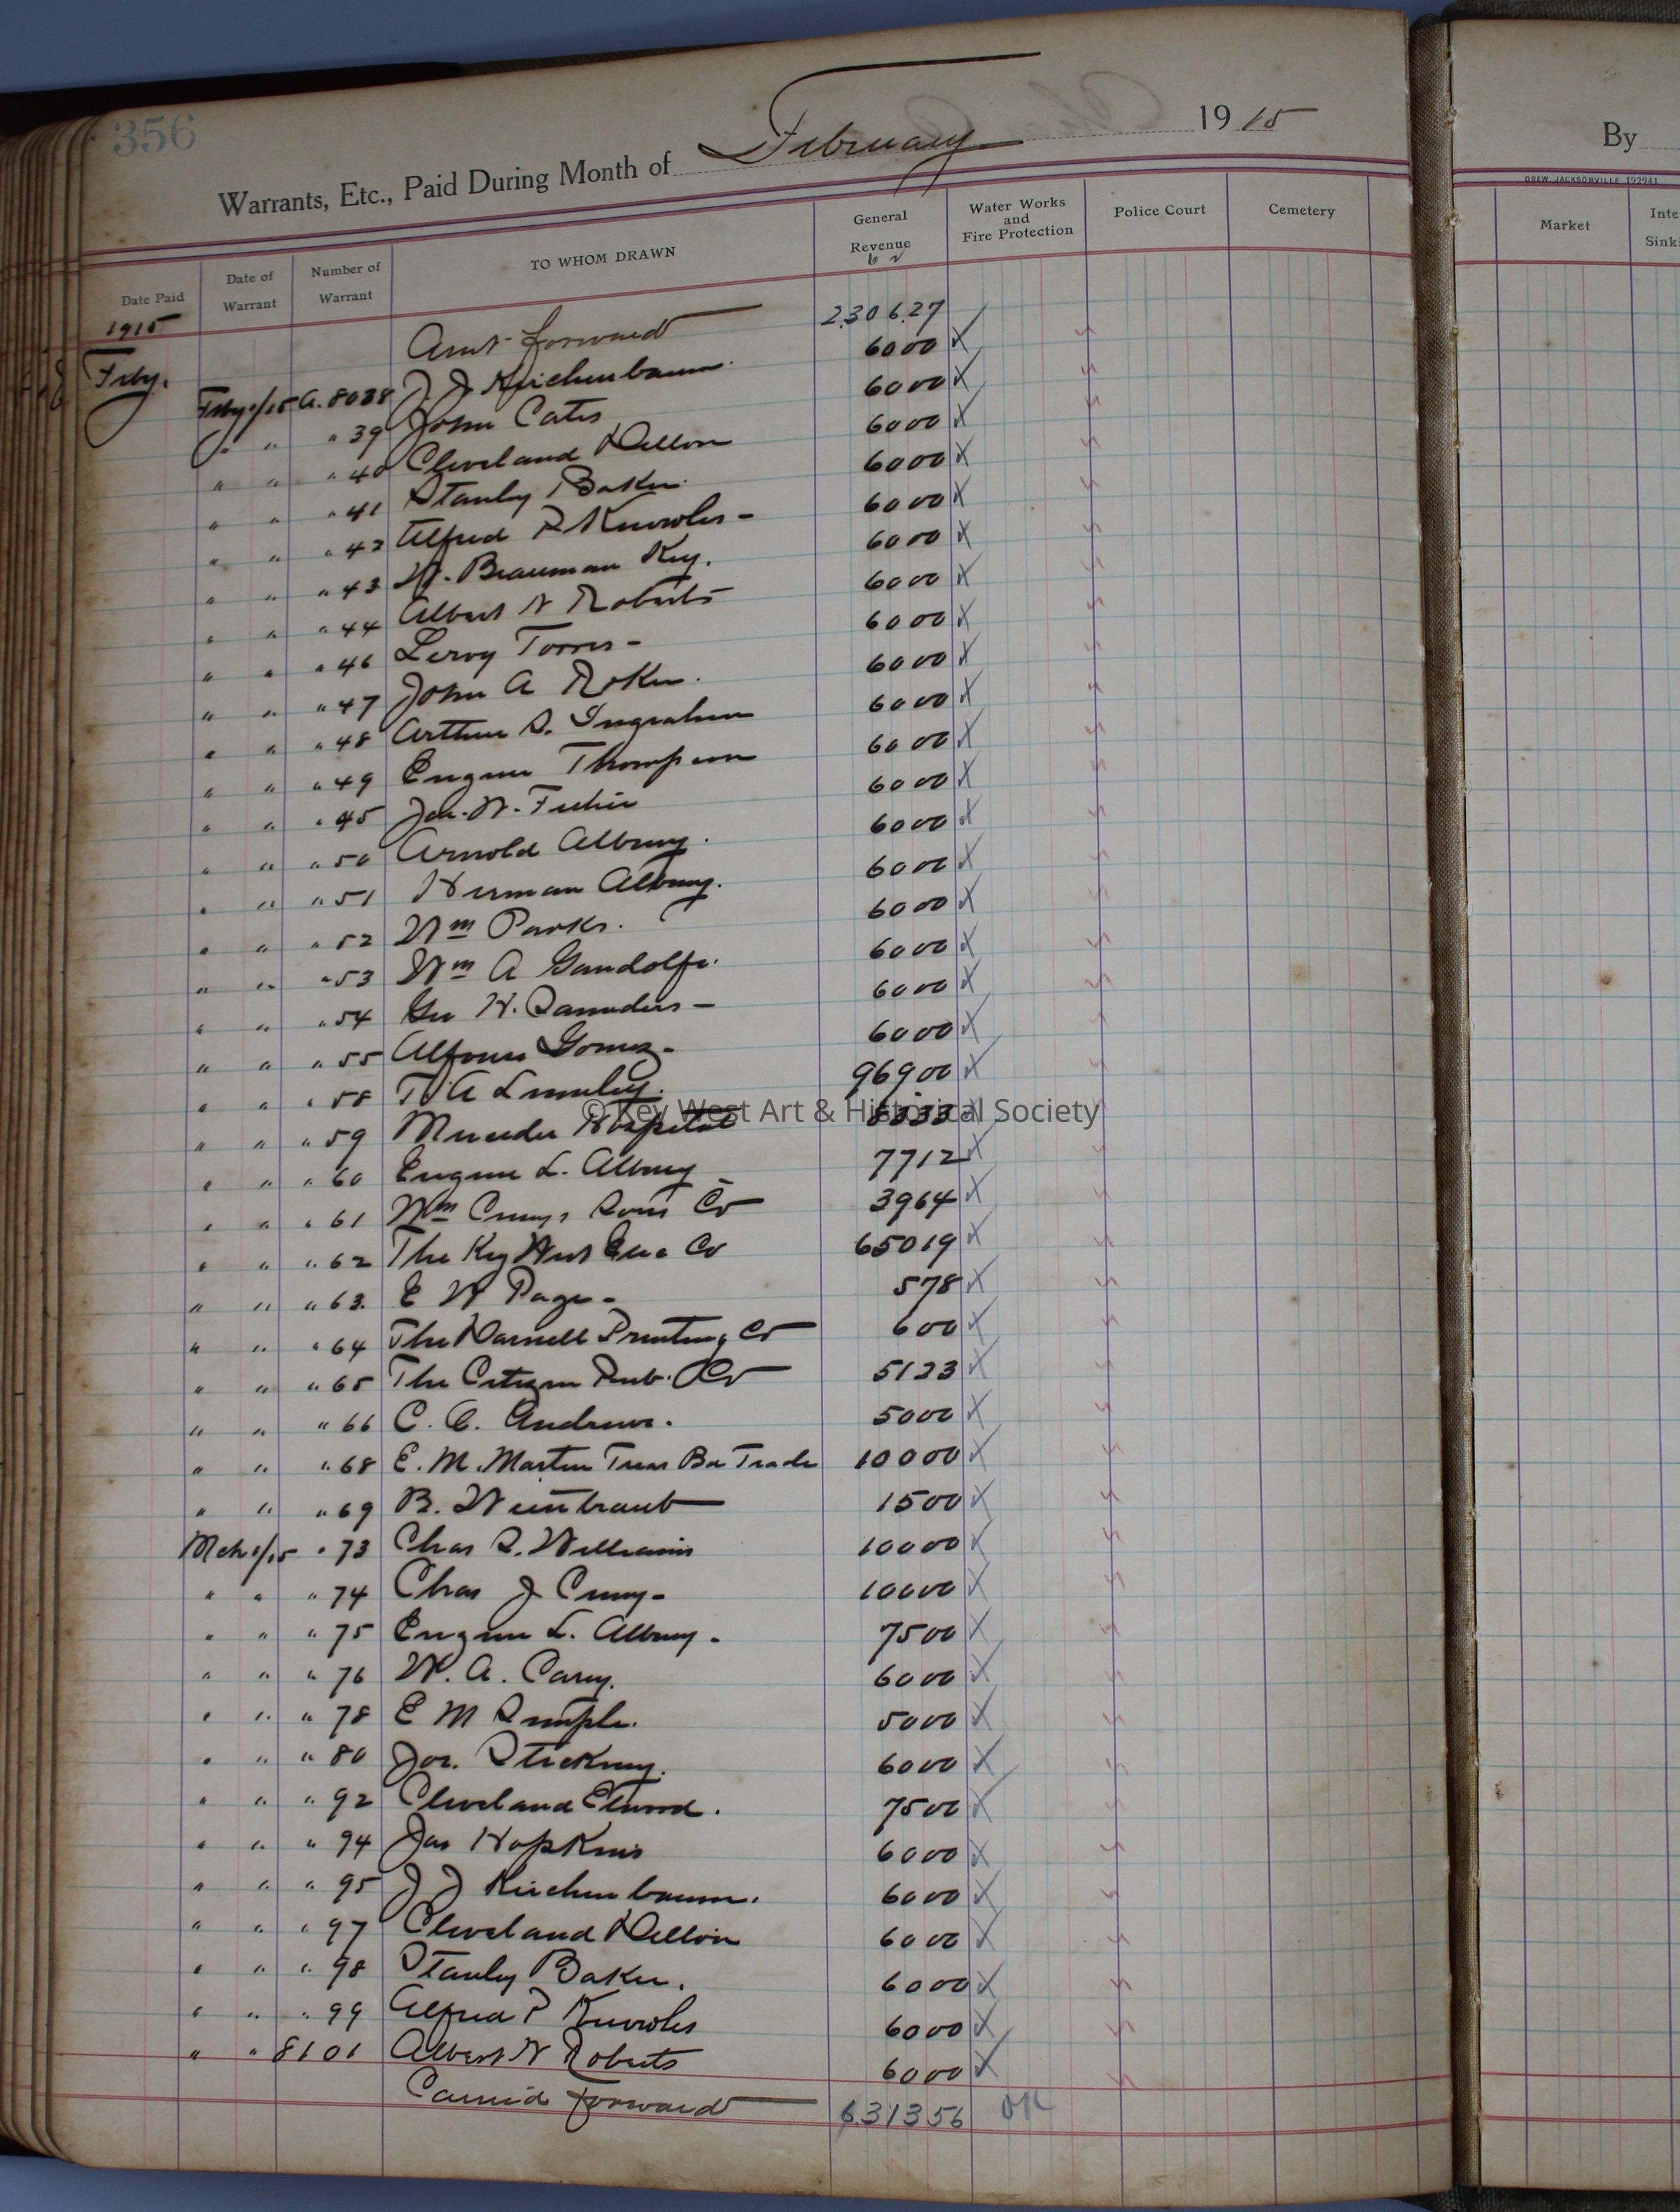 356
Warrants, Etc., Paid During Month of February 1915
By
DREW, JACKSONVILLE 192941
Date Paid Date of Warrant Number of Warrant TO WHOM DRAWN General Revenue Water Works and Fire Protection Police Court Cemetery Market Inte Sinki
1915
Amt forward 2306.27
Feby.
Feby 1/15 A. 8038 J. J. Kirchenbaum. 6000
" " " 39 John Cates 6000
" " " 40 Cleveland Dillon 6000
" " " 41 Stanley Baker. 6000
" " " 42 Alfred P Knowles - 6000
" " " 43 W. Beauman Key. 6000
" " " 44 Albert W Roberts 6000
" " " 46 Leroy Torres - 6000
" " " 47 John A Roker. 6000
" " " 48 Arthur S. Ingraham 6000
" " " 49 Eugene Thompson 6000
" " " 45 W. 6000
" " " 50 Arnold Albury. 6000
" " " 51 Herman Albury. 6000
" " " 52 Wm Parks. 6000
" " " 53 Wm A Gandolfo. 6000
" " " 54 Geo H. Saunders - 6000
" " " 55 Alfonso Gomez - 6000
" " " 58 T. A 96900
" " " 59 Hospital 8333
" " " 60 Eugene L. Albury 7712
" " " 61 Wm Currys Sons Co 3964
" " " 62 The Key West Elec Co 65019
" " " 63. E W Page - 578
" " " 64 The Darnell Printing Co 600
" " " 65 The Citizen Pub. Co 5123
" " " 66 C. C. Andrews. 5000
" " " 68 E. M. Martin Treas Bo Trade 10000
" " " 69 B. Weintraub 1500
Mch 1/15 " 73 Chas S. Williams 10000
" " " 74 Chas J Curry - 10000
" " " 75 Eugene L. Albury - 7500
" " " 76 W. A. Carey. 6000
" " " 78 E M Semple. 5000
" " " 80 Jos. Stickney. 6000
" " " 92 Cleveland Elwood. 7500
" " " 94 Jas Hopkins 6000
" " " 95 J J Kirchenbaum. 6000
" " " 97 Cleveland Dillon 6000
" " " 98 Stanley Baker. 6000
" " " 99 Alfred P Knowles 6000
" " 8101 Albert W Roberts 6000
Carried forward 6.31356 OK
© Key West Art & Historical Society